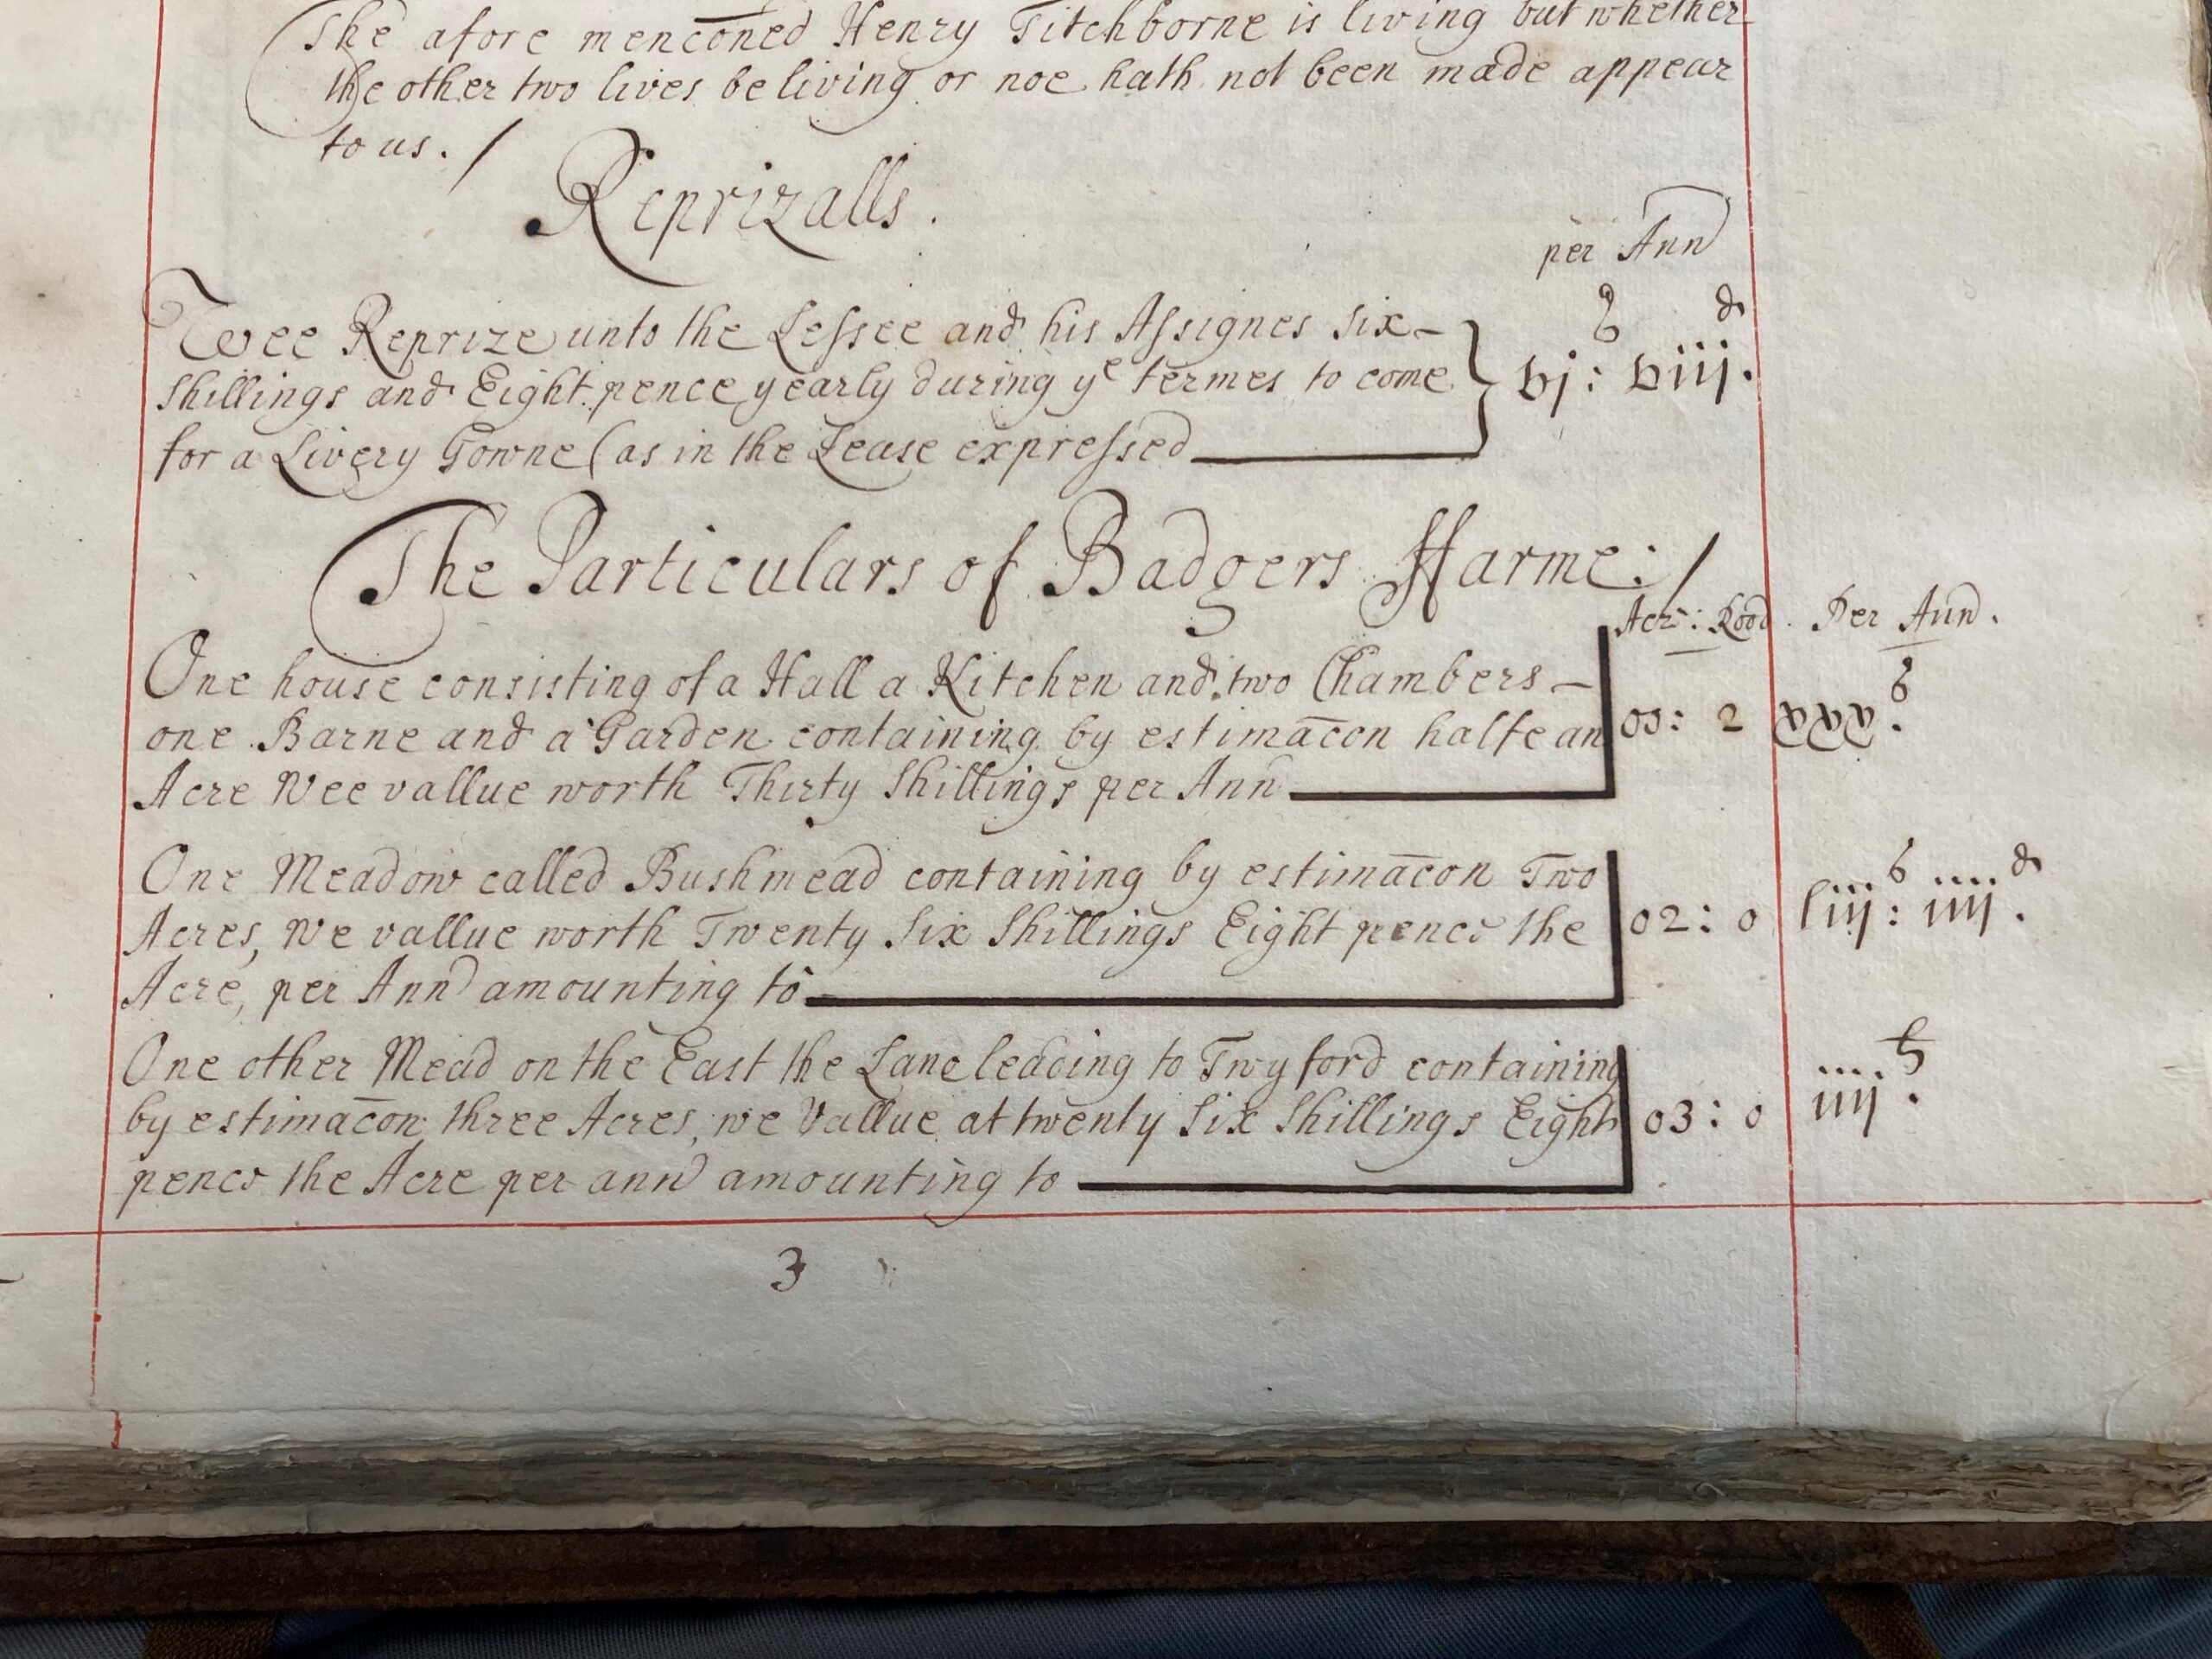 The afore mencōned Henry Titchborne is living but whether
the other two lives be living or noe hath not been made appear
to us. /
Reprizalls.
per Ann
s d
Wee Reprize unto the Lessee and his Assignes six-
shillings and Eight pence yearly during yᵉ termes to come
vj: viij.
for a Livery Gowne (as in the Lease expressed
The Particulars of Badgers ffarme: /
Acrs: Rood. Per Ann.
One house consisting of a Hall a Kitchen and two Chambers -
one Barne and a Garden containing by estimacōn halfe an
00: 2 xxx s.
Acre Wee vallue worth Thirty Shillings per Ann
One Meadow called Bushmead containing by estimacōn Two
Acres, we vallue worth Twenty Six Shillings Eight pence the
02: 0 liij s: iiij d.
Acre, per Ann amounting to
One other Mead on the East the Lane leading to Twyford containing
by estimacōn three Acres, we Vallue at twenty Six Shillings Eight
03: 0 iiij £.
pence the Acre per ann amounting to
3